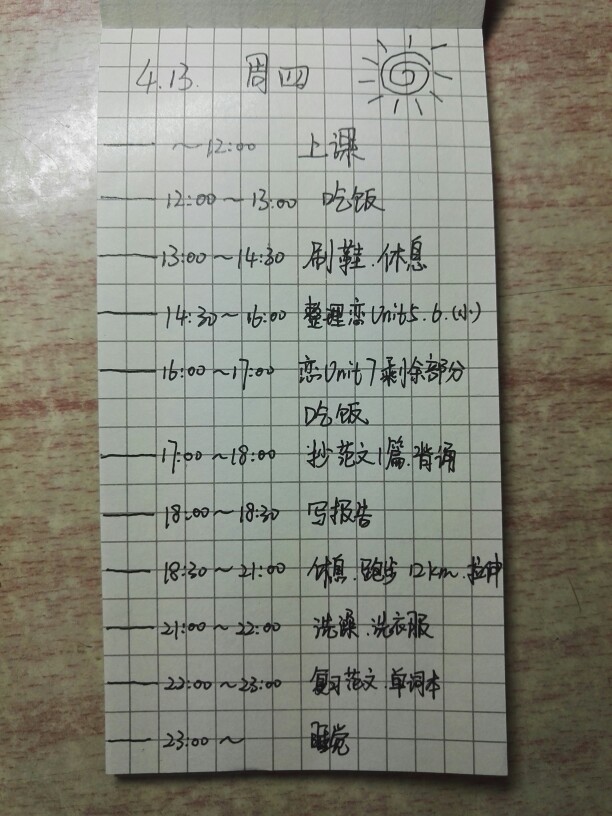 4.13. 周四
～12:00 上课
12:00～13:00 吃饭
13:00～14:30 刷鞋.休息
14:30～16:00 整理恋Unit5.6.(小)
16:00～17:00 恋Unit7剩余部分
吃饭
17:00～18:00 抄范文1篇.背诵
18:00～18:30 写报告
18:30～21:00 休息.跑步12km.拉伸
21:00～22:00 洗澡.洗衣服
22:00～23:00 复习范文.单词本
23:00～ 睡觉